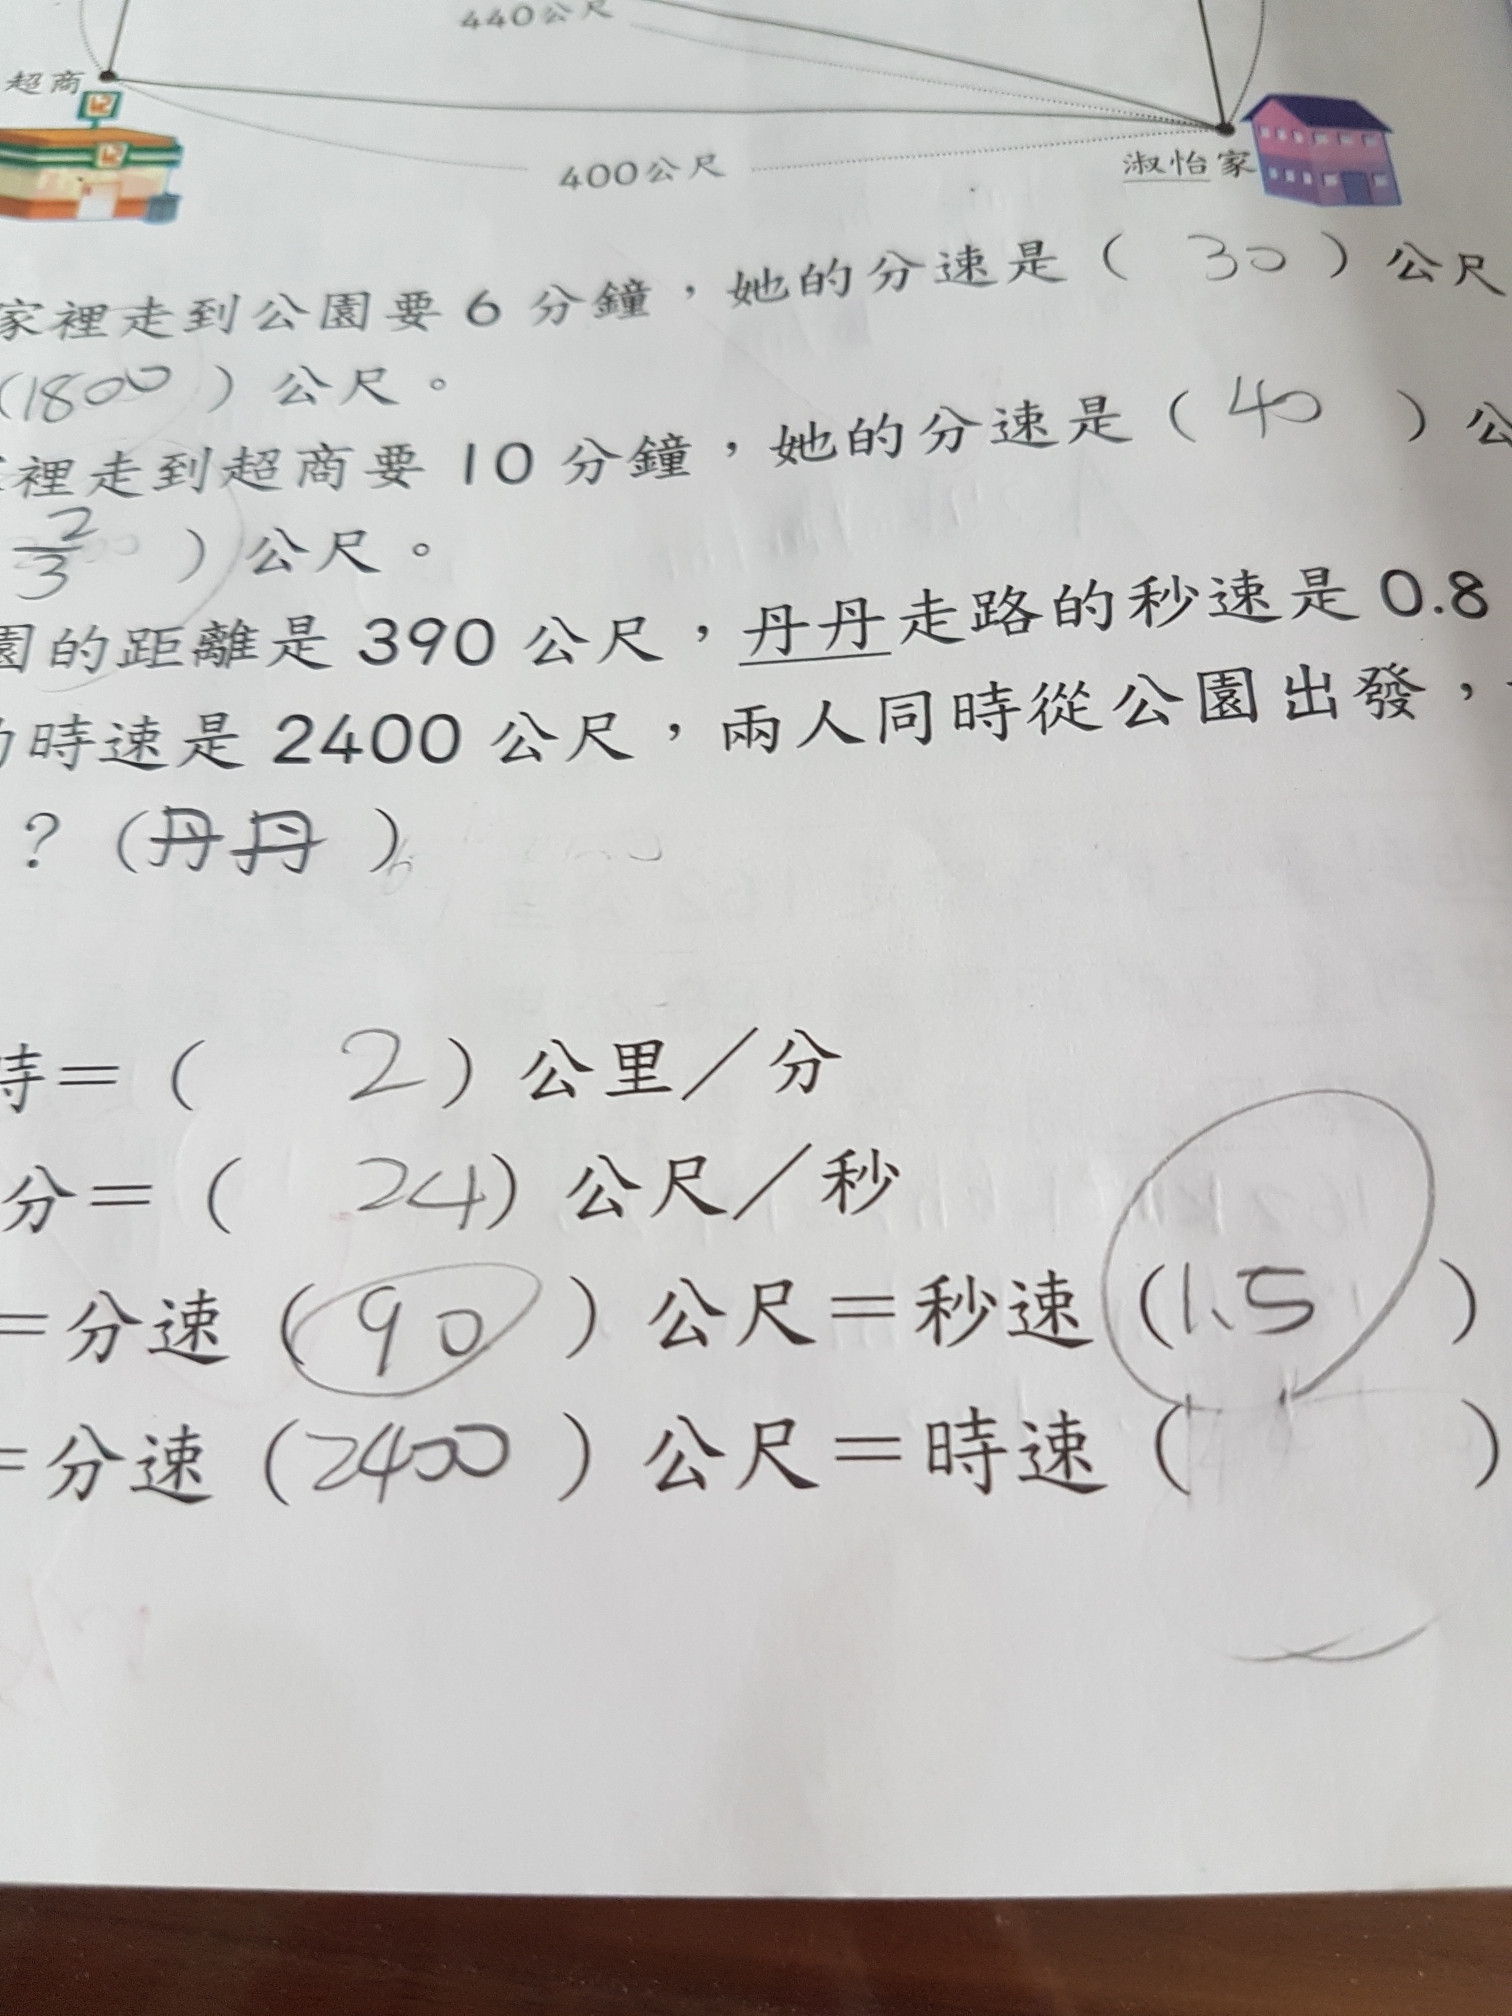 440公尺
超商
400公尺
淑怡家
家裡走到公園要 6 分鐘，她的分速是（ 30 ）公尺
（1800 ）公尺。
裡走到超商要 10 分鐘，她的分速是（ 40 ）公
2/3 ）公尺。
園的距離是 390 公尺，丹丹走路的秒速是 0.8
時速是 2400 公尺，兩人同時從公園出發，
？（丹丹 ）
時＝（ 2 ）公里／分
分＝（ 24）公尺／秒
＝分速（ 90 ）公尺＝秒速（1.5 ）
＝分速（2400 ）公尺＝時速（ ）